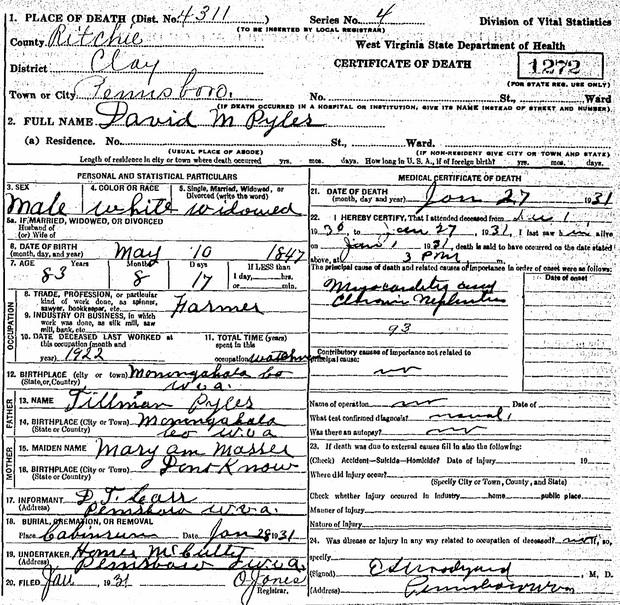 1. PLACE OF DEATH (Dist. No. 4311 Series No. 4 Division of Vital Statistics
(TO BE INSERTED BY LOCAL REGISTRAR)
County Ritchie West Virginia State Department of Health
District Clay CERTIFICATE OF DEATH 1272
(FOR STATE REG. USE ONLY)
Town or City Pennsboro. No. St., Ward
(IF DEATH OCCURRED IN A HOSPITAL OR INSTITUTION, GIVE ITS NAME INSTEAD OF STREET AND NUMBER)
2. FULL NAME David M Pyles
(a) Residence. No. St., Ward.
(USUAL PLACE OF ABODE) (IF NON-RESIDENT GIVE CITY OR TOWN AND STATE)
Length of residence in city or town where death occurred yrs. mos. days. How long in U. S. A., if of foreign birth? yrs. mos. days.
PERSONAL AND STATISTICAL PARTICULARS
3. SEX 4. COLOR OR RACE 5. Single, Married, Widowed, or Divorced (write the word)
Male white widowed
5a. IF MARRIED, WIDOWED, OR DIVORCED
Husband of
(or) Wife of
6. DATE OF BIRTH
(month, day, and year) May 10 1847
7. AGE Years Months Days IF LESS than
83 8 17 1 day, hrs.
or min.
OCCUPATION
8. TRADE, PROFESSION, or particular
kind of work done, as spinner,
sawyer, bookkeeper, etc. Farmer
9. INDUSTRY OR BUSINESS, in which
work was done, as silk mill, saw
mill, bank, etc.
10. DATE DECEASED LAST WORKED at
this occupation (month and
year) 1922
11. TOTAL TIME (years)
spent in this
occupation
12. BIRTHPLACE (city or town) Moningahala Co
(State, or, Country) W va.
FATHER
13. NAME Tillman Pyles
14. BIRTHPLACE (City or Town) Moningahala
(State or Country) Co W va
MOTHER
15. MAIDEN NAME Mary am Masser
16. BIRTHPLACE (City or Town) Dont Know
(State or Country)
17. INFORMANT D. T. Carr
(Address) Pennsboro W va.
18. BURIAL, CREMATION, OR REMOVAL
Place Cabinrun Date Jan 28 1931
19. UNDERTAKER Homer McCullty
(Address) Pennsboro W va.
20. FILED Jan 1931 O Jones
Registrar.
MEDICAL CERTIFICATE OF DEATH
21. DATE OF DEATH
(month, day and year) Jan 27 1931
22. I HEREBY CERTIFY, That I attended deceased from
1930, to Jan 27, 1931, I last saw him alive
on Jan 1931, death is said to have occurred on the date stated
above, at 3 P m.
The principal cause of death and related causes of importance in order of onset were as follows:
Date of onset
Myocarditis and
Chronic Nephritis
93
Contributory causes of importance not related to
principal cause:
no
Name of operation no Date of
What test confirmed diagnosis?
Was there an autopsy? no
23. If death was due to external causes fill in also the following:
(Check) Accident—Suicide—Homicide? Date of Injury 19
Where did injury occur?
(Specify City or Town, County, and State)
Check whether injury occurred in industry home public place
Manner of injury
Nature of Injury
24. Was disease or injury in any way related to occupation of deceased? If so,
specify
(Signed) M. D.
(Address)